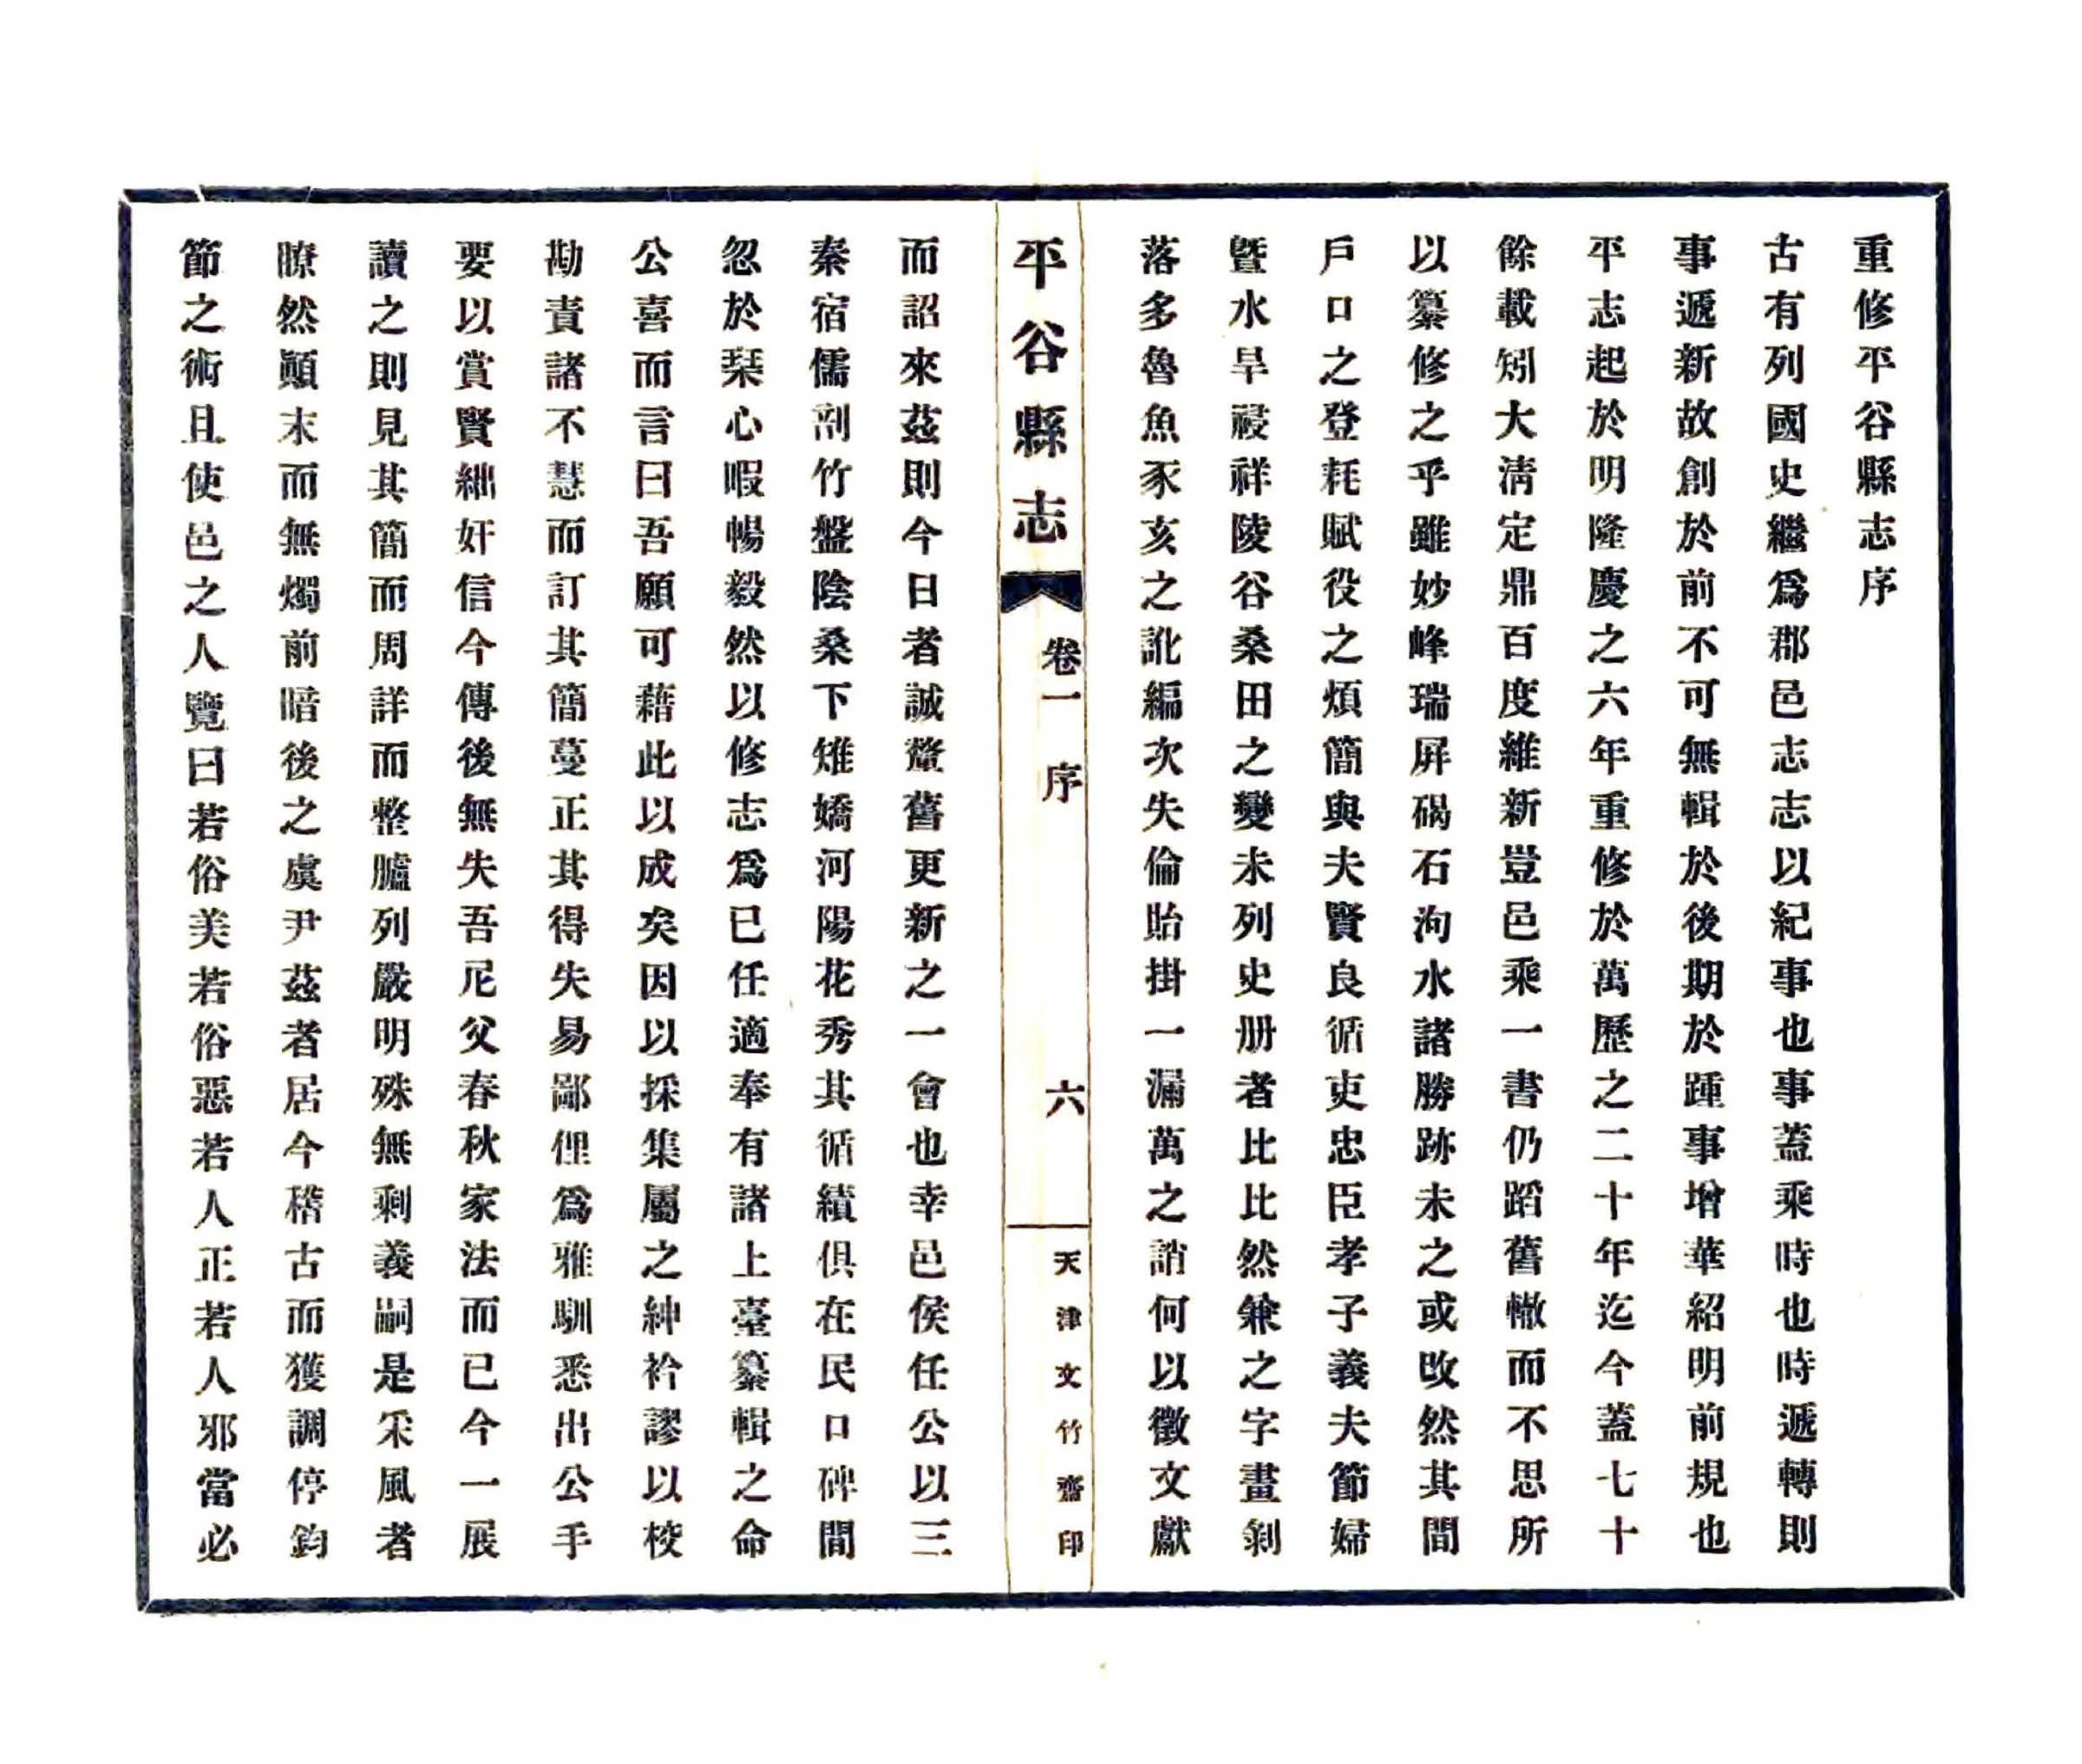 重修平谷縣志序
古有列國史繼爲郡邑志志以紀事也事蓋乘時也時遞轉則
事遞新故創於前不可無輯於後期於踵事增華紹明前規也
平志起於明隆慶之六年重修於萬歷之二十年迄今蓋七十
餘載矧大淸定鼎百度維新豈邑乘一書仍蹈舊轍而不思所
以纂修之乎雖妙峰瑞屛碣石泃水諸勝跡未之或改然其間
戶口之登耗賦役之煩簡與夫賢良循吏忠臣孝子義夫節婦
曁水旱祲祥陵谷桑田之變未列史册者比比然兼之字畫剝
落多魯魚豕亥之訛編次失倫貽掛一漏萬之誚何以徵文獻
平谷縣志
卷一 序
六
天津文竹齋印
而詔來茲則今日者誠釐舊更新之一會也幸邑侯任公以三
秦宿儒剖竹盤陰桑下雉嬌河陽花秀其循績俱在民口碑間
忽於琹心暇暢毅然以修志爲已任適奉有諸上臺纂輯之命
公喜而言曰吾願可藉此以成矣因以採集屬之紳衿謬以校
勘責諸不慧而訂其簡蔓正其得失易鄙俚爲雅馴悉出公手
要以賞賢絀奸信今傳後無失吾尼父春秋家法而已今一展
讀之則見其簡而周詳而整臚列嚴明殊無剩義嗣是采風者
瞭然顚末而無燭前暗後之虞尹茲者居今稽古而獲調停鈞
節之術且使邑之人覽曰若俗美若俗惡若人正若人邪當必